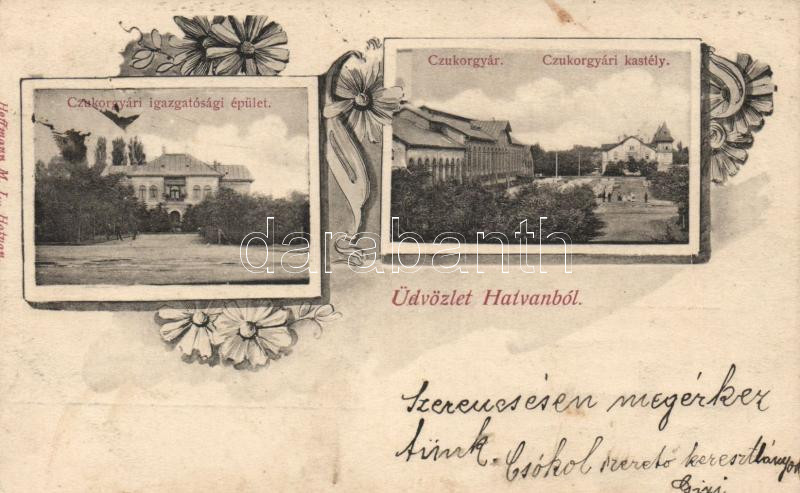 Czukorgyári igazgatósági épület.
Czukorgyár. Czukorgyári kastély.
Hoffmann M. L.
Üdvözlet Hatvanból.
darabanth
Szerencsésen megérkez
tünk. Csókol szerető keresztlányod
Gizi